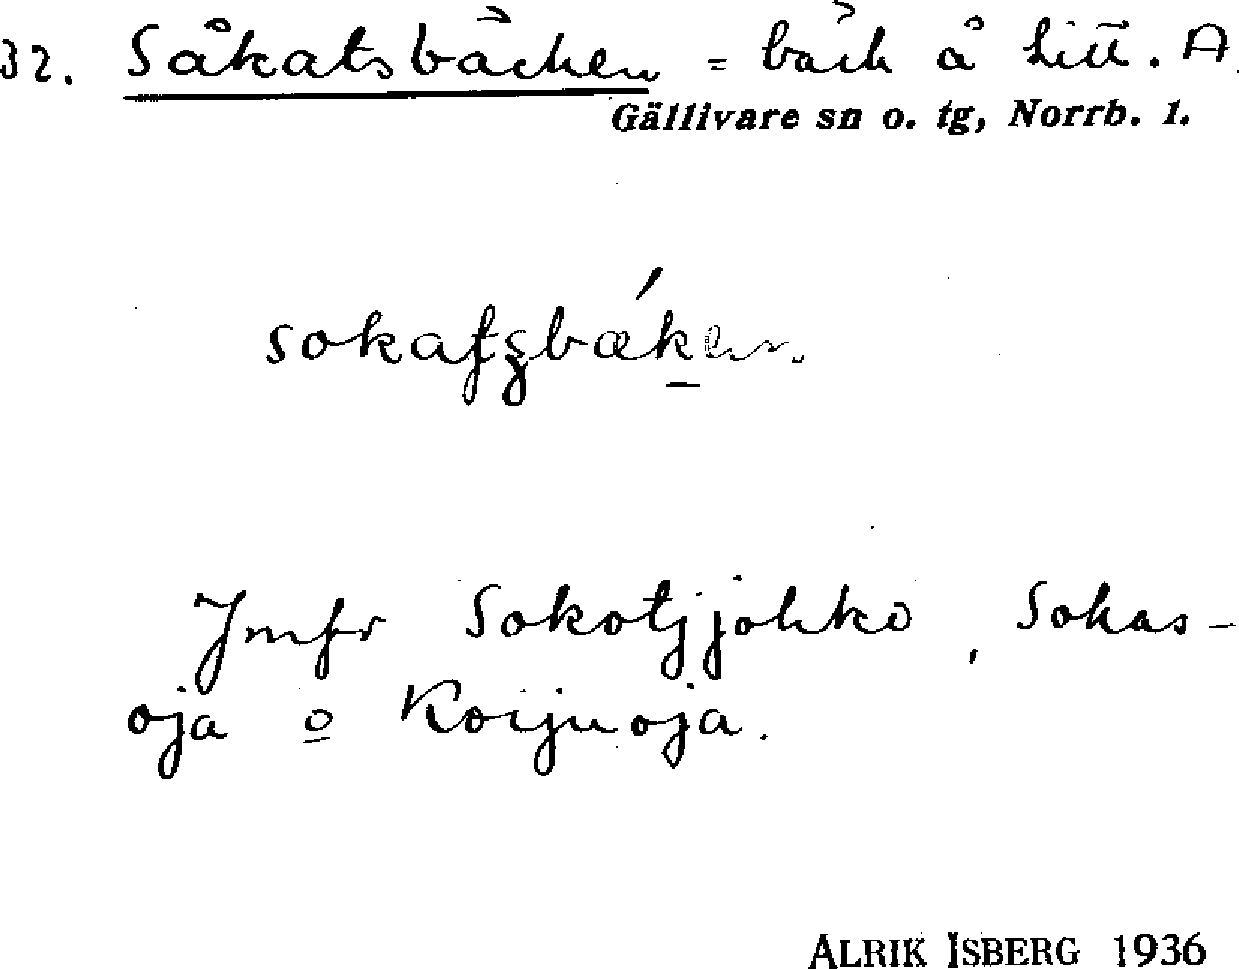 32. Såkatsbäcken = bäck å litt. A.
Gällivare sn o. tg, Norrb. l.
Jmfr Sokotjjohko, Sokas-
oja o Koijuoja.
ALRIK ISBERG 1936